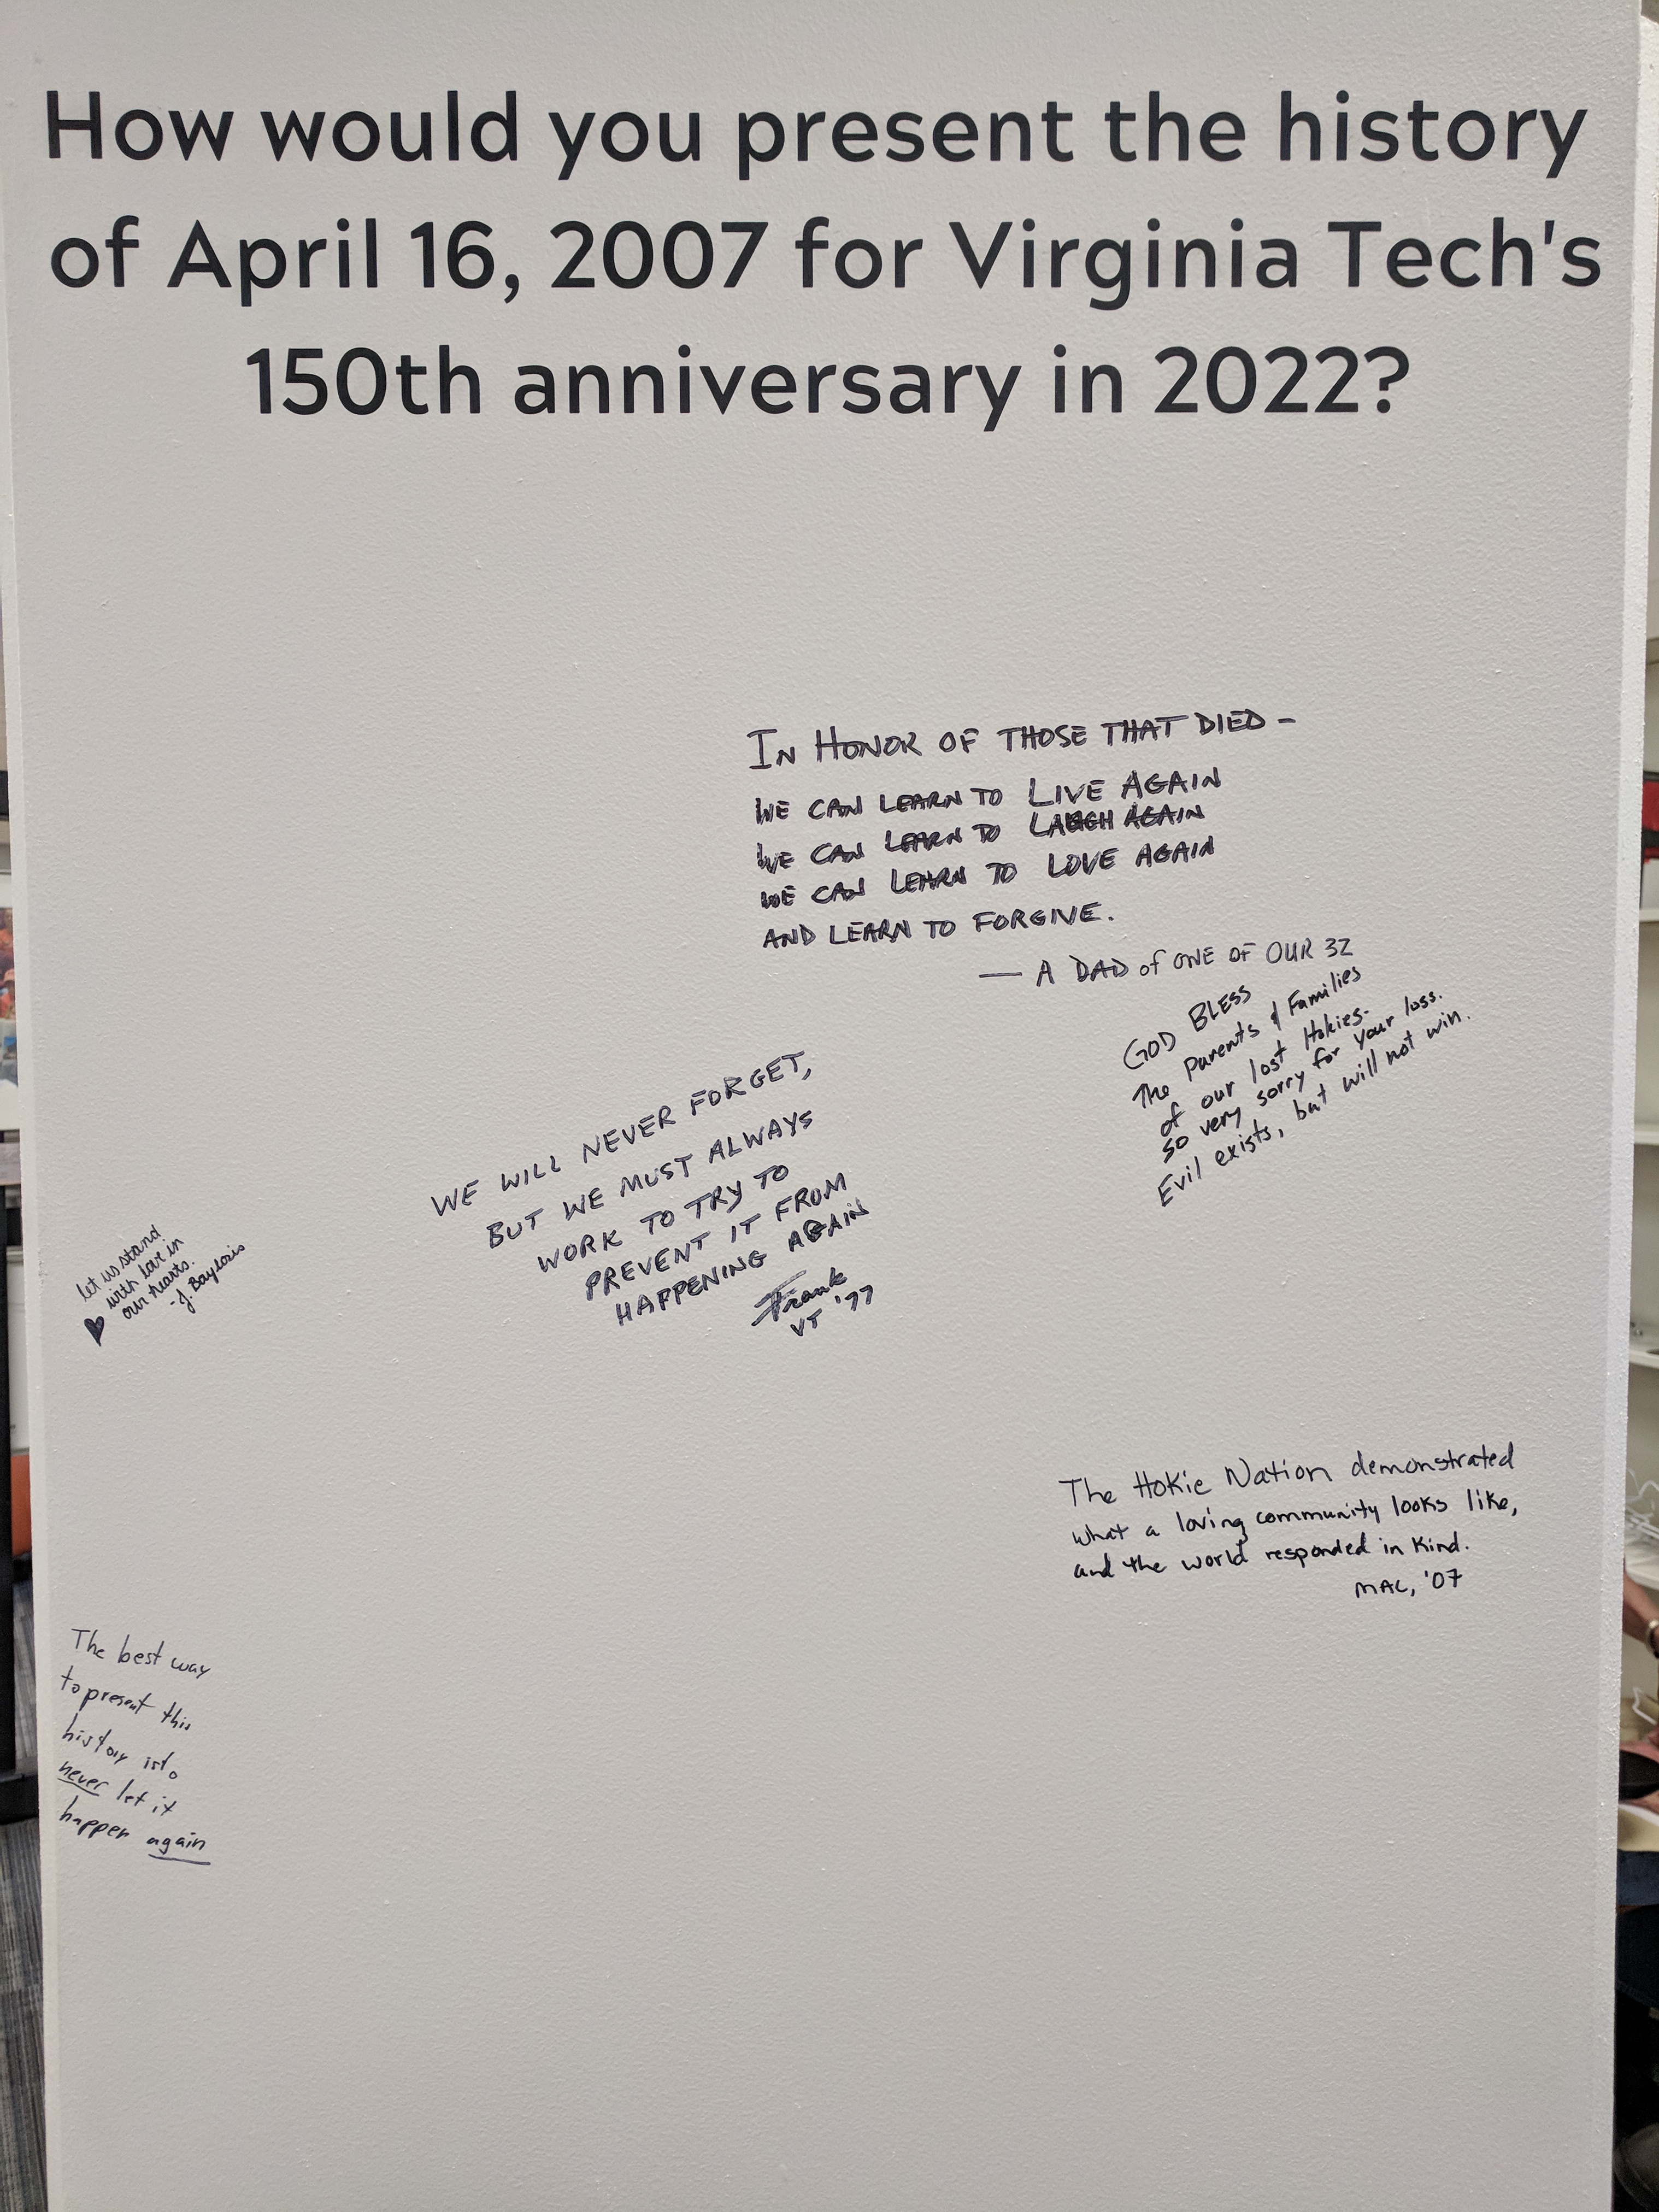 How would you present the history
of April 16, 2007 for Virginia Tech's
150th anniversary in 2022?
IN HONOR OF THOSE THAT DIED -
WE CAN LEARN TO LIVE AGAIN
WE CAN LEARN TO LAUGH AGAIN
WE CAN LEARN TO LOVE AGAIN
AND LEARN TO FORGIVE.
— A DAD of ONE OF OUR 32
GOD BLESS
The parents & Families
of our lost Hokies.
so very sorry for your loss.
Evil exists, but will not win.
WE WILL NEVER FORGET,
BUT WE MUST ALWAYS
WORK TO TRY TO
PREVENT IT FROM
HAPPENING AGAIN
Frank
VT '77
let us stand
with love in
our hearts.
-J.
The Hokie Nation demonstrated
what a loving community looks like,
and the world responded in kind.
MAC, '07
The best way
to present this
history is to
never let it
happen again